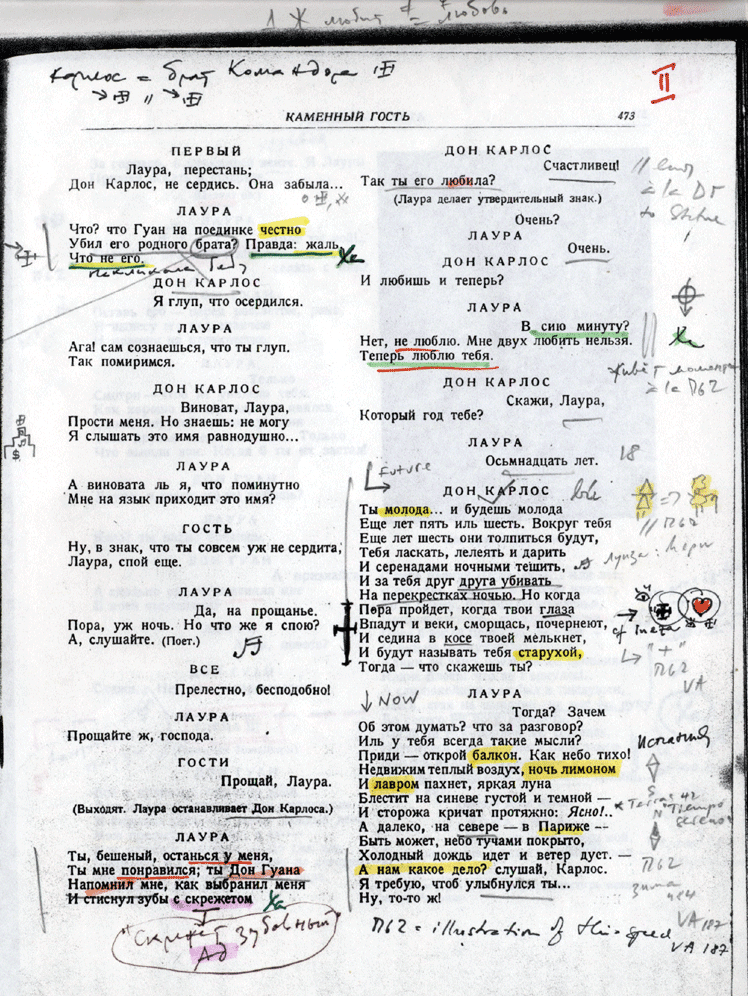 1 Ж любит
любовь
Карлос = брат Командора
II
КАМЕННЫЙ ГОСТЬ
473
ПЕРВЫЙ
Лаура, перестань;
Дон Карлос, не сердись. Она забыла...
ЛАУРА
Что? что Гуан на поединке честно
Убил его родного брата? Правда: жаль,
Что не его.
ДОН КАРЛОС
Я глуп, что осердился.
ЛАУРА
Ага! сам сознаешься, что ты глуп.
Так помиримся.
ДОН КАРЛОС
Виноват, Лаура,
Прости меня. Но знаешь: не могу
Я слышать это имя равнодушно...
$
ЛАУРА
А виновата ль я, что поминутно
Мне на язык приходит это имя?
ГОСТЬ
Ну, в знак, что ты совсем уж не сердита,
Лаура, спой еще.
ЛАУРА
Да, на прощанье.
Пора, уж ночь. Но что же я спою?
А, слушайте. (Поет.)
ВСЕ
Прелестно, бесподобно!
ЛАУРА
Прощайте ж, господа.
ГОСТИ
Прощай, Лаура.
(Выходят. Лаура останавливает Дон Карлоса.)
ЛАУРА
Ты, бешеный, останься у меня,
Ты мне понравился; ты Дон Гуана
Напомнил мне, как выбранил меня
И стиснул зубы с скрежетом
"Скрежет зубовный"
Ад
ДОН КАРЛОС
Счастливец!
Так ты его любила?
(Лаура делает утвердительный знак.)
Очень?
ЛАУРА
Очень.
ДОН КАРЛОС
И любишь и теперь?
ЛАУРА
В сию минуту?
Нет, не люблю. Мне двух любить нельзя.
Теперь люблю тебя.
живёт моментом
à la П62
ДОН КАРЛОС
Скажи, Лаура,
Который год тебе?
ЛАУРА
Осьмнадцать лет.
18
Future
ДОН КАРЛОС
Ты молода... и будешь молода
Еще лет пять иль шесть. Вокруг тебя
Еще лет шесть они толпиться будут,
Тебя ласкать, лелеять и дарить
И серенадами ночными тешить,
И за тебя друг друга убивать
На перекрестках ночью. Но когда
Пора пройдет, когда твои глаза
Впадут и веки, сморщась, почернеют,
И седина в косе твоей мелькнет,
И будут называть тебя старухой,
Тогда — что скажешь ты?
// П62
"+"
П62
VA
NOW
ЛАУРА
Тогда? Зачем
Об этом думать? что за разговор?
Иль у тебя всегда такие мысли?
Приди — открой балкон. Как небо тихо!
Недвижим теплый воздух, ночь лимоном
И лавром пахнет, яркая луна
Блестит на синеве густой и темной —
И сторожа кричат протяжно: Ясно!..
А далеко, на севере — в Париже —
Быть может, небо тучами покрыто,
Холодный дождь идет и ветер дует. —
А нам какое дело? слушай, Карлос.
Я требую, чтоб улыбнулся ты...
Ну, то-то ж!
S
N
П62
VA 187
П62 = illustration of this speech
VA 187